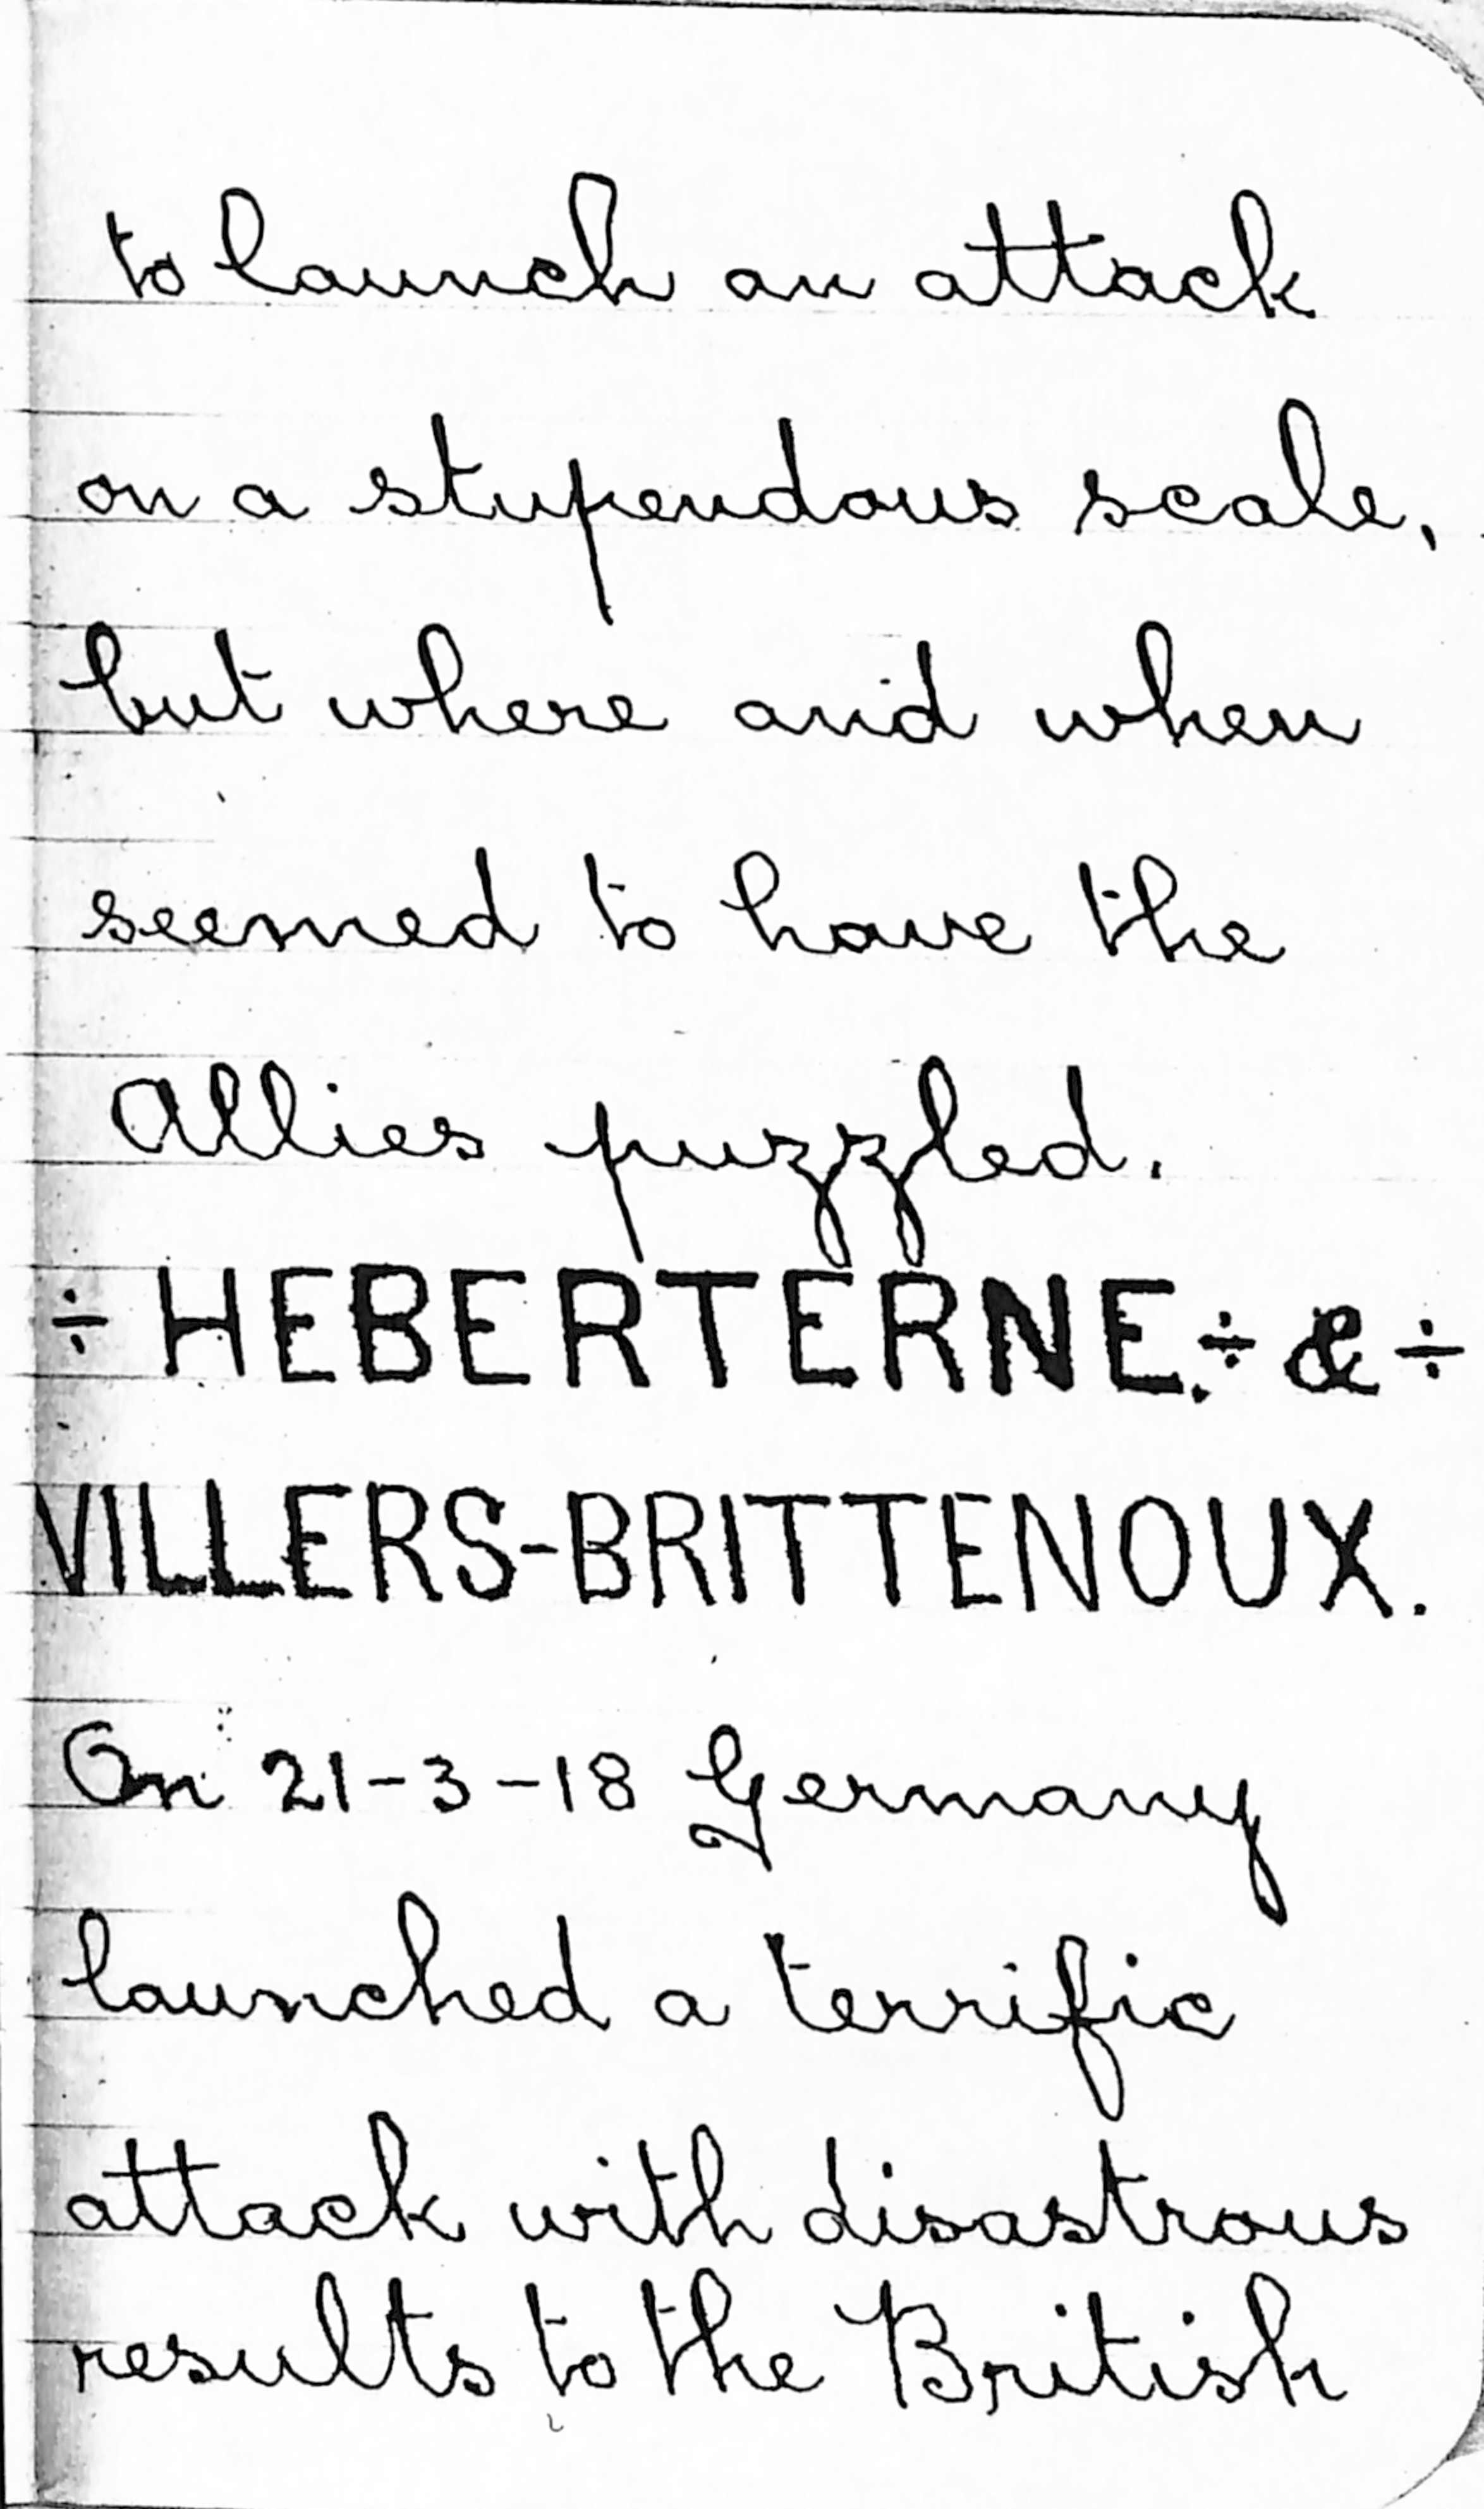 to launch an attack
on a stupendous scale,
but where and when
seemed to have the
Allies puzzled.
÷ HEBERTERNE. ÷ & ÷
VILLERS-BRITTENOUX.
On 21-3-18 Germany
launched a terrific
attack with disastrous
results to the British